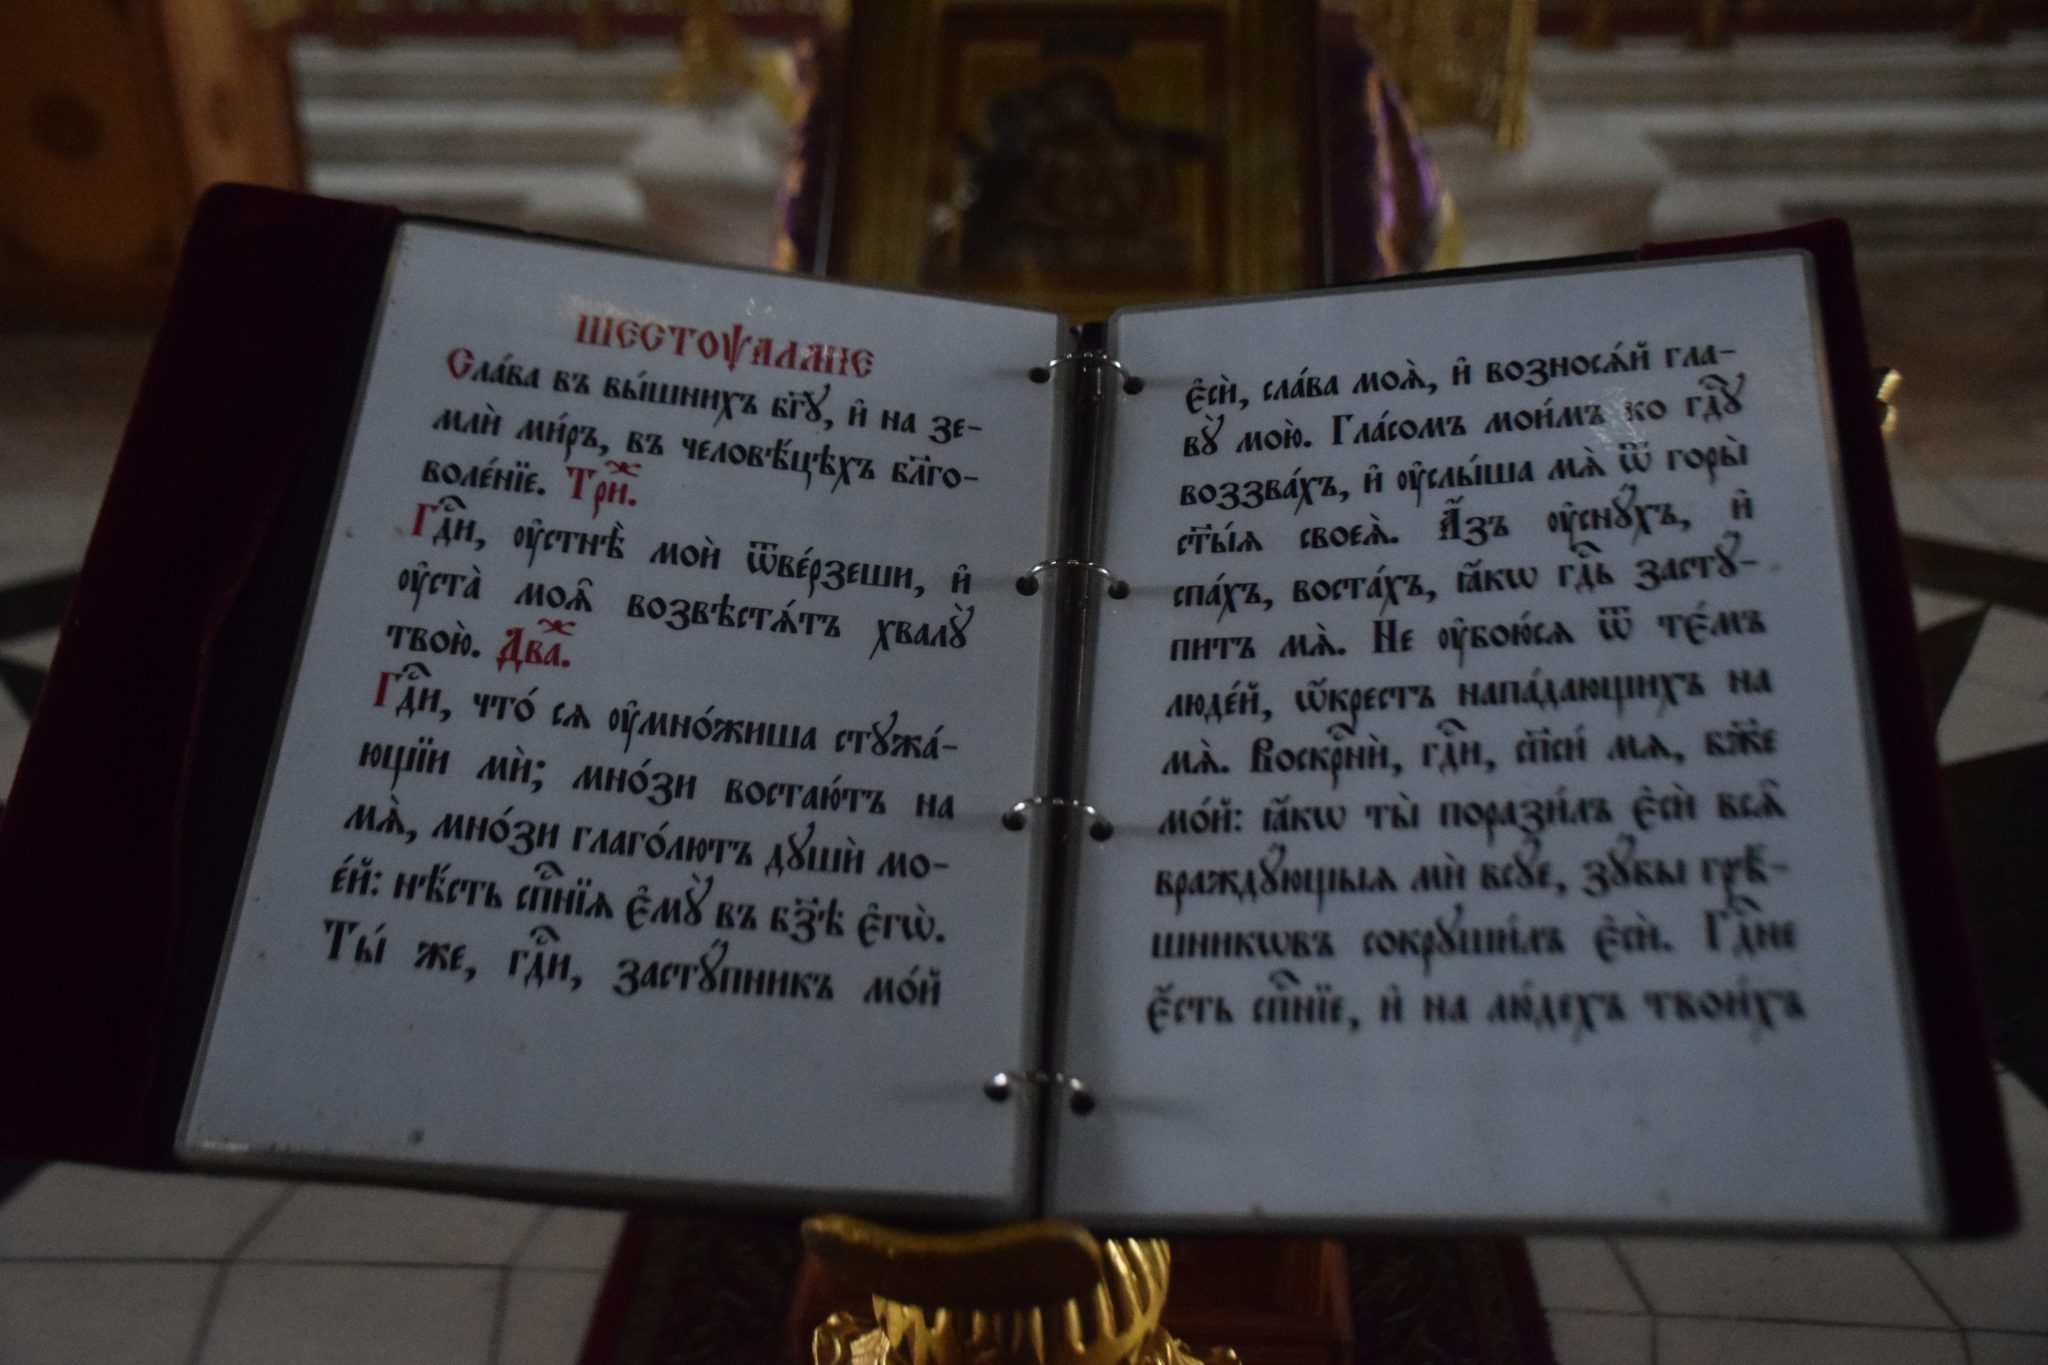 ШЕСТОѰАЛМІЕ
Сла́ва въ вы́шнихъ бг҃ꙋ, и҆ на зе-
млѝ ми́ръ, въ человѣ́цѣхъ бл҃го-
воле́нїе. Три́ж.
Гдⷭ҇и, ᲂу҆стнѣ̀ моѝ ѿве́рзеши, и҆
ᲂу҆ста̀ моѧ̑ возвѣстѧ́тъ хвалꙋ̀
твою̀. Два́ж.
Гдⷭ҇и, что́ сѧ ᲂу҆мно́жиша стꙋжа́-
ющїи мѝ; мно́зи востаю́тъ на
мѧ̀, мно́зи глаго́лютъ дꙋшѝ мо-
е́й: нѣ́сть спⷭ҇нїѧ є҆мꙋ̀ въ бз҃ѣ є҆гѡ̀.
Ты́ же, гдⷭ҇и, застꙋ́пникъ мо́й
є҆сѝ, сла́ва моѧ̀, и҆ возносѧ́й гла-
вꙋ̀ мою̀. Гла́сомъ мои́мъ ко гдⷭ҇ꙋ
воззва́хъ, и҆ ᲂу҆слы́ша мѧ̀ ѿ горы̀
ст҃ы́ѧ своеѧ̀. А҆́зъ ᲂу҆снꙋ́хъ, и҆
спа́хъ, воста́хъ, ꙗ҆́кѡ гдⷭ҇ь застꙋ́-
питъ мѧ̀. Не ᲂу҆бою́сѧ ѿ те́мъ
люде́й, ѡ҆́крестъ напа́дающихъ на
мѧ̀. Воскрⷭ҇нѝ, гдⷭ҇и, сп҃си́ мѧ, бж҃е
мо́й: ꙗ҆́кѡ ты̀ порази́лъ є҆сѝ всѧ̑
враждꙋ́ющыѧ мѝ всꙋ́е, зꙋ́бы грѣ́-
шникѡвъ сокрꙋши́лъ є҆сѝ. Гдⷭ҇не
є҆́сть спⷭ҇нїе, и҆ на лю́дехъ твои́хъ